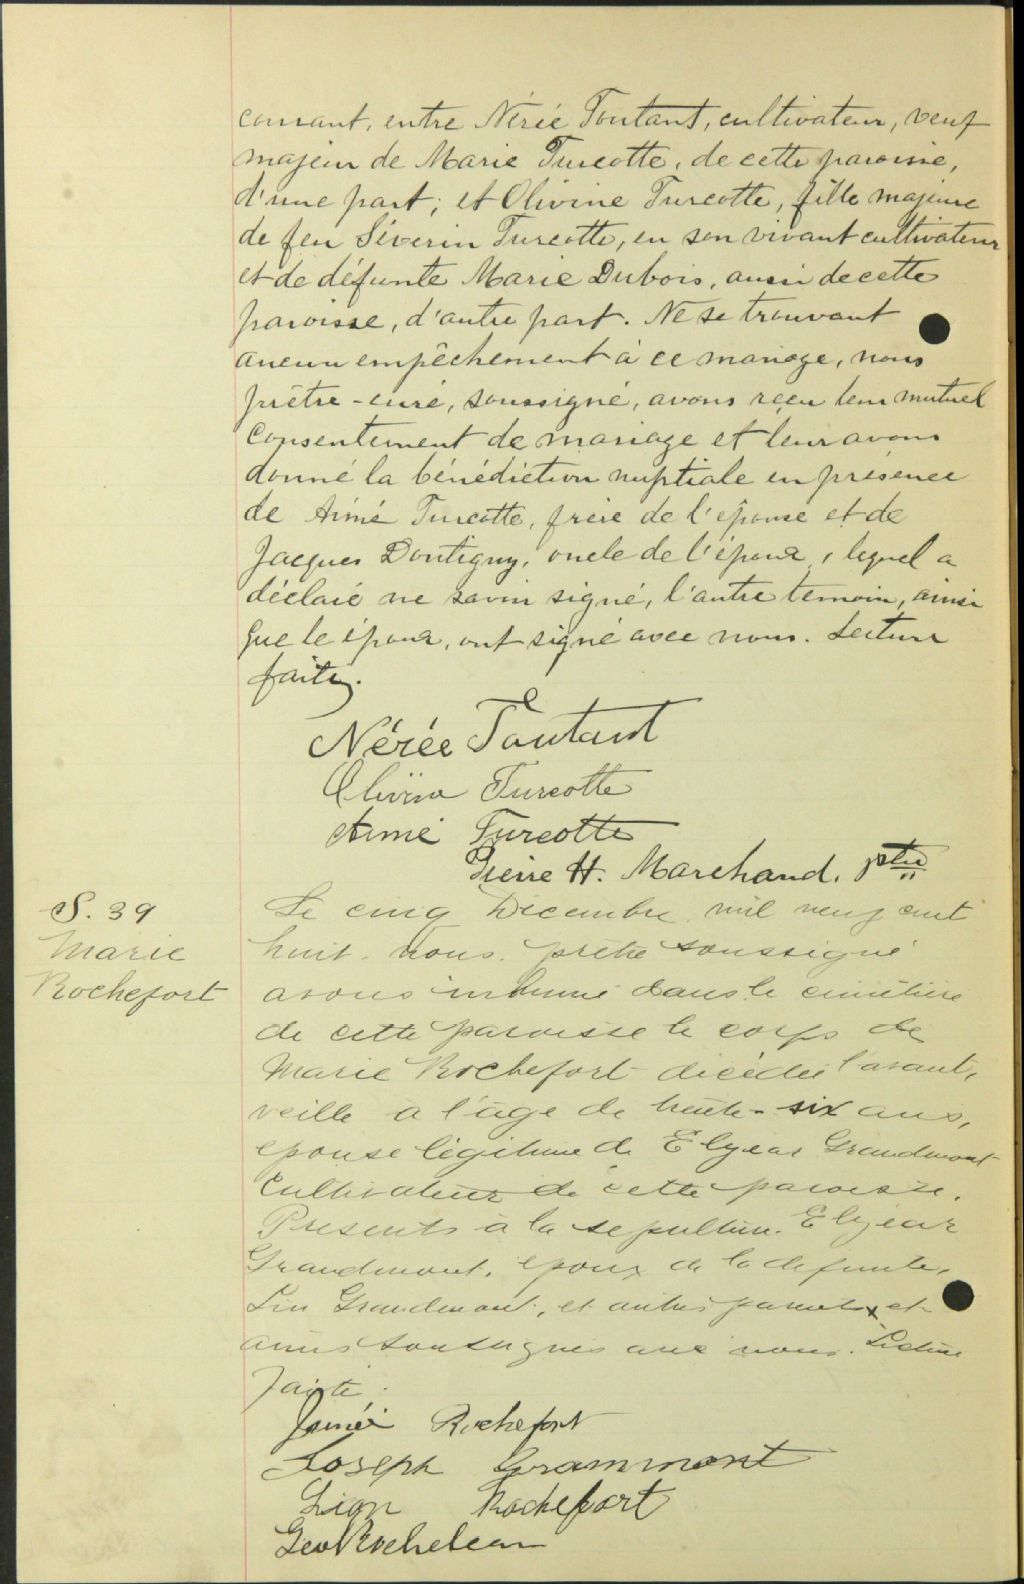 courant, entre Nérée Toutant, cultivateur, veuf
majeur de Marie Turcotte, de cette paroisse,
d'une part; et Olivine Turcotte, fille majeure
de feu Séverin Turcotte, en son vivant cultivateur
et de défunte Marie Dubois, aussi de cette
paroisse, d'autre part. Ne se trouvant
aucun empêchement à ce mariage, nous
prêtre-curé, soussigné, avons reçu leur mutuel
consentement de mariage et leur avons
donné la bénédiction nuptiale en présence
de Aimé Turcotte, frère de l'épouse et de
Jacques Dontigny, oncle de l'époux, lequel a
déclaré ne savoir signé, l'autre témoin, ainsi
que le époux, ont signé avec nous. Lecture
faite.
Nérée Toutant
Olivina Turcotte
Aimé Turcotte
Pierre H. Marchand, ptre
S. 39
Marie
Rochefort
Le cinq Decembre mil neuf cent
huit. nous pretre soussigné
avons inhumé dans le cimetière
de cette paroisse le corps de
Marie Rochefort decedée l'avant,
veille a l'age de trente-six ans,
epouse légitime de Elyear Grandmont
Cultivateur de cette paroisse.
Presents à la sepulture. Elyear
Grandmont, epoux de la defunte,
Grandmont, et autres parents x et
amis soussignés avec nous. Lecture
faite.
Rochefort
Joseph Grammont
Rochefort
Geo Rocheleau